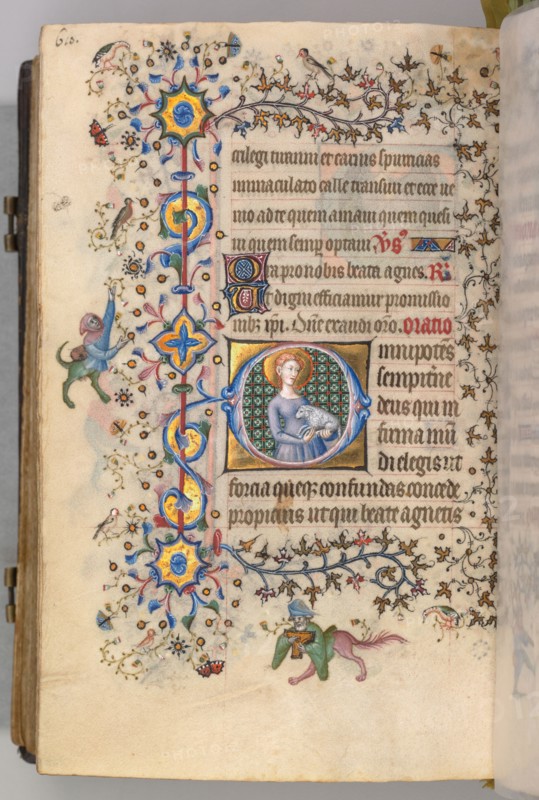 618.
euilegi tiranni et carnis spurcicias
immaculato calle transiui et ecce ue
nio ad te quem amaui quem quesi
ui quem semp optaui Vs
Ora pro nobis beata agnes. R
Ut digni efficiamur promissio
nibz xpi. Dne exaudi oro. oratio
mnipotes
sempitne
deus qui in
firma mu
di elegis ut
forcia queqz confundas concede
propicius ut qui beate agnetis